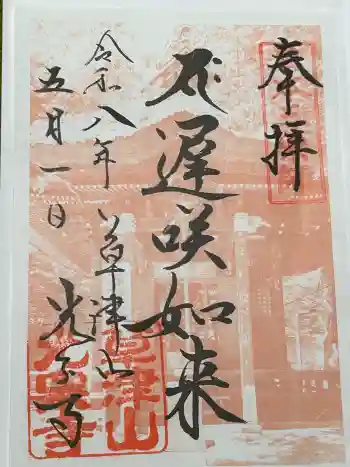 奉拝
遅咲如来
令和八年
五月一日
草津山
光泉寺
草津山
光泉寺